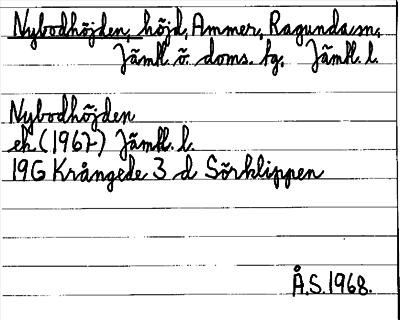 Nybodhöjden, höjd, Ammer, Ragunda sn,
Jämtl. ö. doms. tg. Jämtl. l.
Nybodhöjden
ek (1967) Jämtl. l.
19G Krångede 3 d Sörklippen
Å.S. 1968.